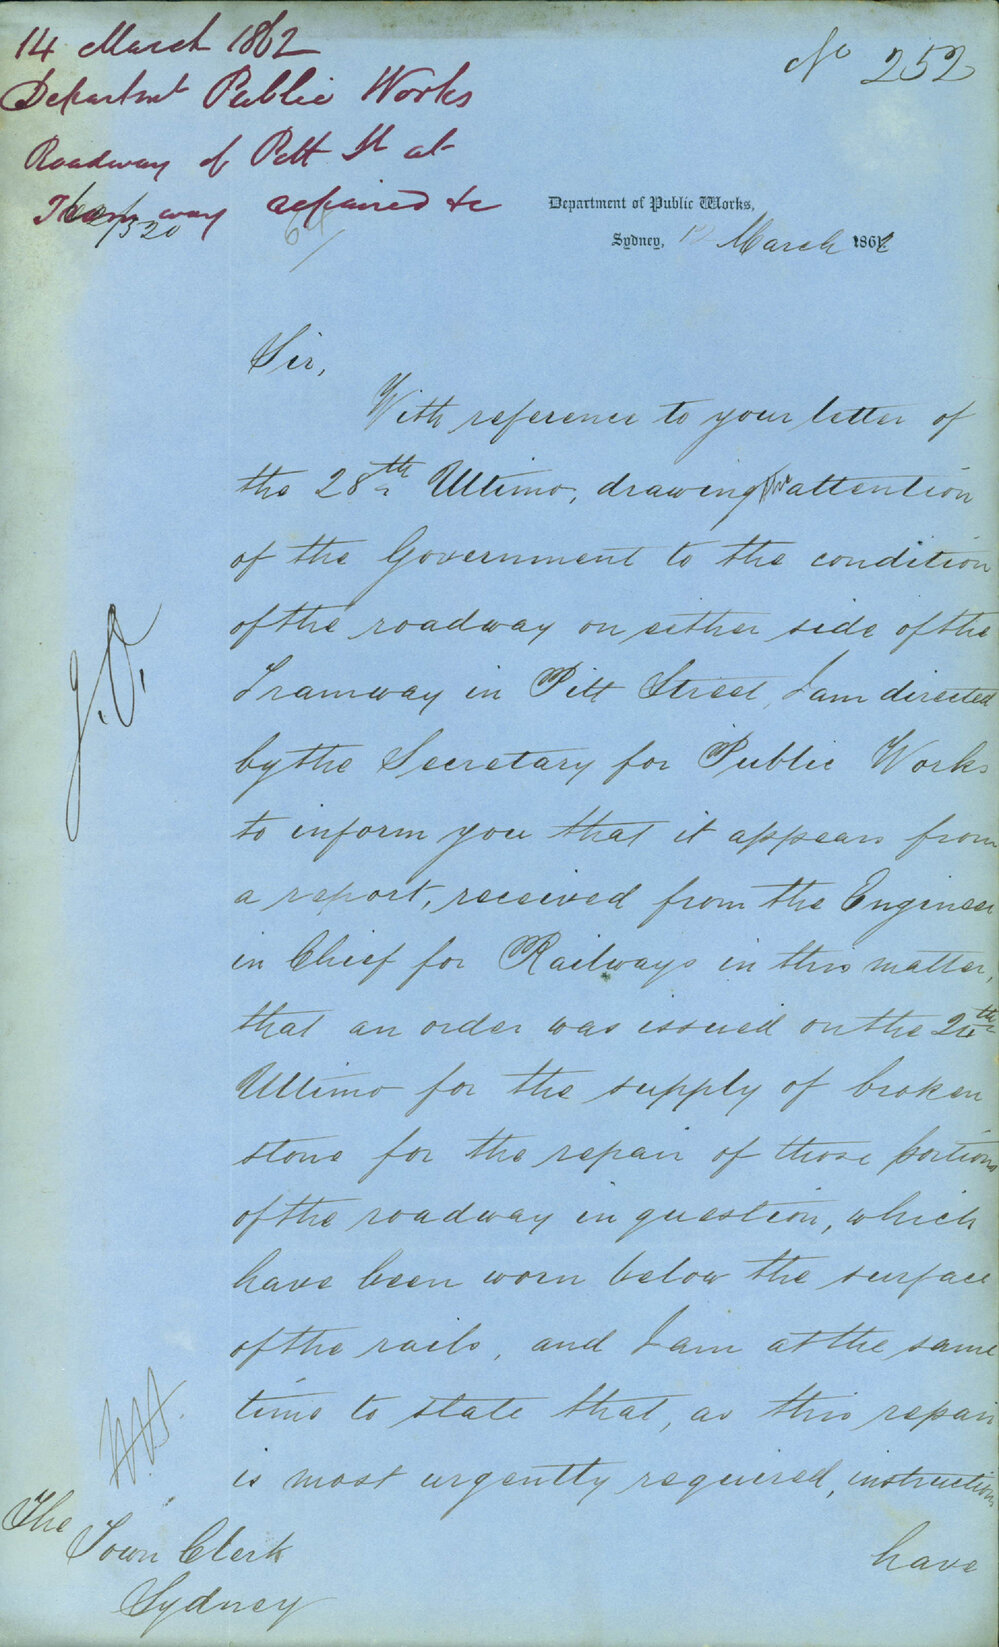 14 March 1862
No 252
Departmt Public Works
Roadway of Pitt St at
Tram way repaired &c
62/320
Department of Public Works,
Sydney, 12 March 1862
Sir,
With reference to your letter of
the 28th Ultimo, drawing the attention
of the Government to the condition
of the roadway on either side of the
Tramway in Pitt Street, I am directed
by the Secretary for Public Works
to inform you that it appears from
a report, received from the Engineer
in Chief for Railways in this matter,
that an order was issued on the 24th
Ultimo for the supply of broken
stone for the repair of those portions
of the roadway in question, which
have been worn below the surface
of the rails, and I am at the same
time to state that, as this repair
is most urgently required, instructions
have
The
Town Clerk
Sydney